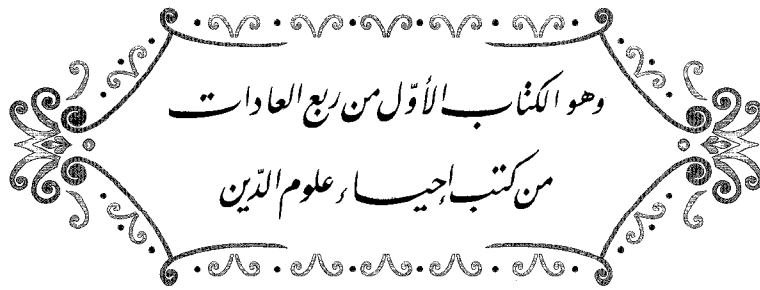 وهو الكتاب الأوّل من ربع العادات
من كتب إحياء علوم الدّين